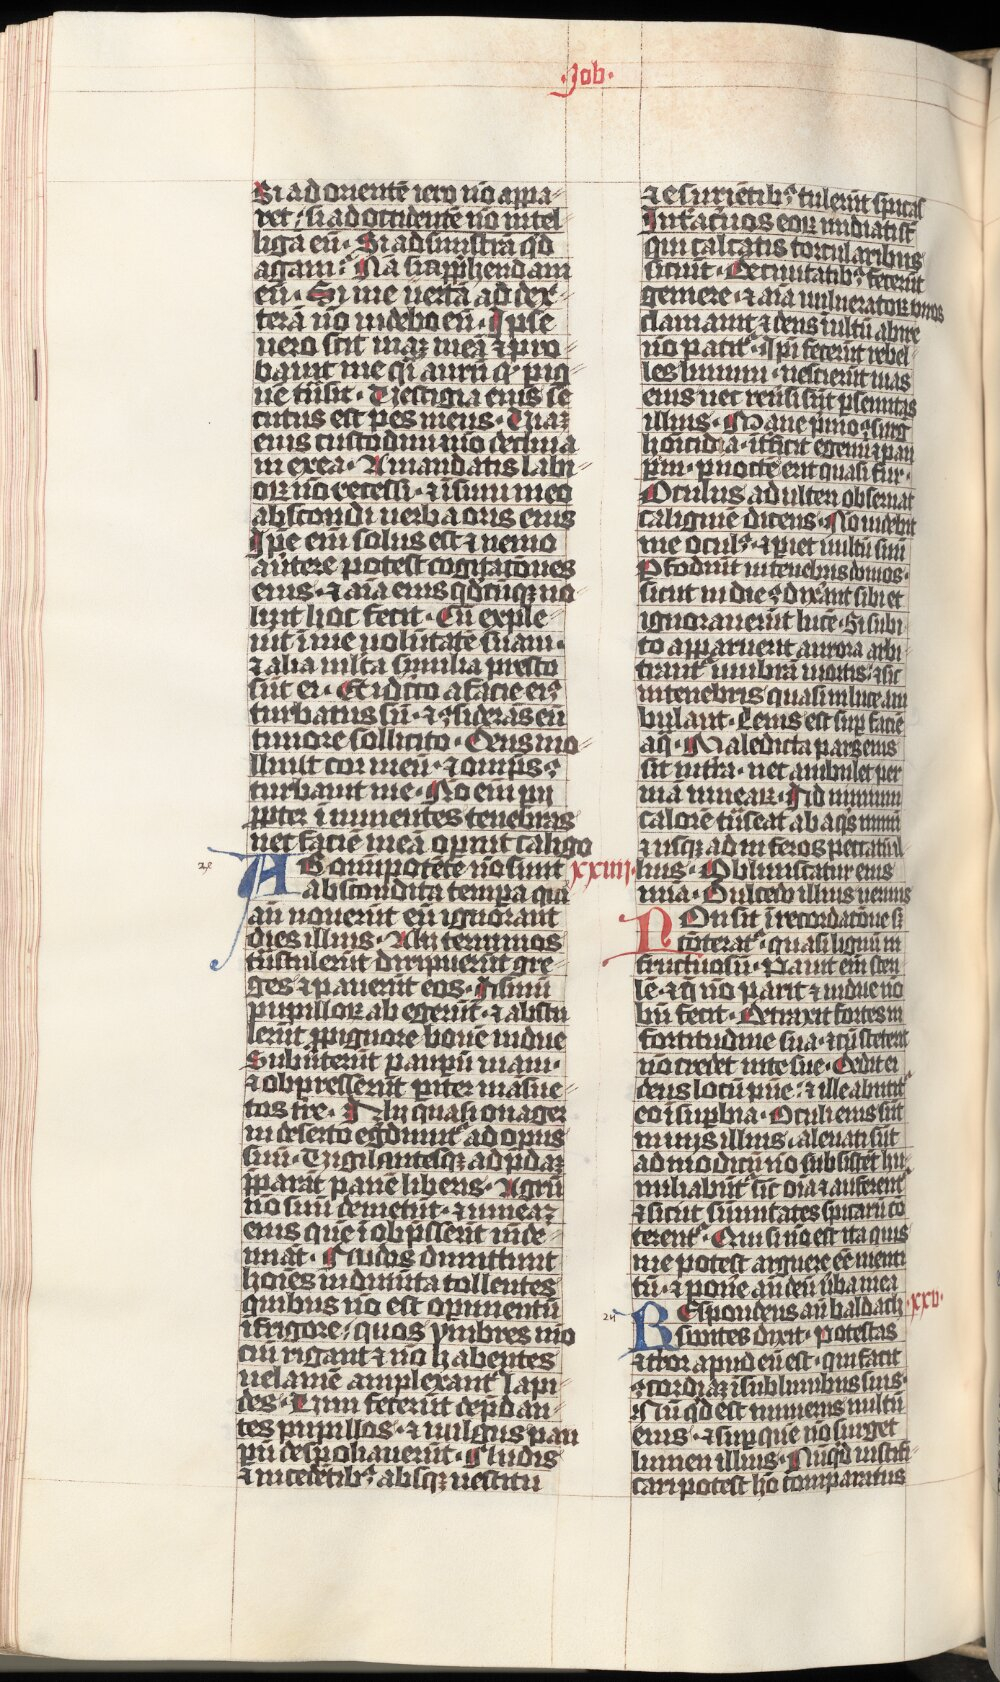 ·Job·
Si ad oriente᷒ iero nō appa⸗
ret / si ad occidentē nō intel⸗
liga eū · Si ad sinistrā qͥd
agam · Nō apprehendam
eū · Si me vertā ad dex⸗
terā nō videbo eū · Ipse
vero scit viaꝫ meā ⁊ pro⸗
bavit me qͥ aurū qͦ ꝑ ig⸗
nē trāsit · Vestigia eius se⸗
cutus est pes meus · Viaꝫ
eius custodivi ⁊ nō declina⸗
vi ex ea · A mandatis labi⸗
oꝝ nō recessi · ⁊ ī sinu meo
abscondi verba oris eius
Ipse eni᷒ solus est ⁊ nemo
avertere potest cogitacōnes
eius · ⁊ aīa eius qͦdcūqꝫ vo⸗
luit hoc fecit · Cū exple⸗
vit ī me volūtatē suam ·
⁊ alia multa similia presto
sūt ei · Et idcirco a facie eiꝰ
turbatus sū · ⁊ ꝯsiderās eū
timore sollicitor · Deus mo⸗
llivit cor meū · ⁊ omīpsꝰ
turbavit me · Nō eni᷒ ꝑii
ꝓpter īminentes tenebras
nec faciē meā oꝑuit caligo
AB omīpotēte nō sunt
xxiiii ·
abscondita tempa qui
aū noverūt eū ignorant
dies illius · Alii terminos
trāstulerūt diripuerūt gre⸗
ges ⁊ paverūt eos · Asinū
pupilloꝝ abegerūt · ⁊ abstu⸗
lerūt ꝓ pignore bovē vidue
Subverterūt paupū viam ·
⁊ obpresserūt ꝑiter māsue⸗
tos tr̄e · Alii quasi onager
in deserto egrediūtᷣ ad opus
suū · Vigilantesqꝫ ad p̄daꝫ
ꝓparāt panē liberis · Agrū
nō suū demetūt · ⁊ vineaꝫ
eius quē vi obp̄sserīt vīde⸗
miāt · Nudos dimittunt
hoīes indumīta tollentes
quibus nō est opimentū
ī frigore / quos ymbres mō
ciū rigant ⁊ nō habentes
velamē amplexantᷣ lapi⸗
des · Vim fecerūt dep̄dan⸗
tes pupillos · ⁊ vulgus pau
pū despoliaverūt · Nudis
⁊ incedētibꝰ absqꝫ vestitu
⁊ esuriētibꝰ tulerūt spicas
Int̄ aceruos eoꝝ meridiati st̄
qui calcatis torcularibus
sitiūt · De civitatibꝰ fecerūt
gemere · ⁊ aīa vulneratoꝝ
clamavit ⁊ deus īultū abire
nō patitᷣ · Ipi fuerūt rebel⸗
les lumini · nescierūt vias
eius nec reversi sūt ꝑ semitas
illius · Mane primo ꝯsurg
homicida · interficit egenū ⁊ pau
ꝑm · ꝑ noctē erit quasi fur ·
Oculus adulteri observat
caliginē dicens · Nō videbit
me oculꝰ · ⁊ oꝑiet vultū suū
Perfodiūt in tenebris domos ·
sicut in die ꝯdixerāt sibi et
ignoraverūt lucē · Si subi⸗
to apparuerit aurora arbi
trantᷣ umbrā mortis · ⁊ sic
in tenebris quasi in luce am
bulant · Levis est suꝑ faciē
aq̄ · Maledicta pars eius
sit in t̄ra · nec ambulet per
viā vineaꝝ · Ad nimium
calorē trāseat ab aqͥs nivium
⁊ usqꝫ ad inferos peccatū il
lius · Obliviscatur eius
mīa · Dulcedo illius vermis
NOn sit ī recordatōne sꝫ
coteratᷣ · quasi lignū in
fructuosū · Pavit eni᷒ steri
lē · ⁊ q̄ nō parit ⁊ vidue nō
bn̄ fecit · Detraxit fortes in
fortitudine sua · ⁊ cū steterit
nō credet vite sue · Dedit ei
deus locū pn̄ie · ⁊ ille abutitᷣ
eo ī suꝑbia · Oculi eius sūt
in viis illius · elevati sūt
ad modicū nō subsistēt hu⸗
miliabūtᷣ sic oīa ⁊ auferentᷣ
⁊ sicut sūmitates spicarū co
terentᷣ · Qui si nō est ita quis
me potest arguere eē menti
tū · ⁊ ponē añ deū v̄ba mea
REspondens aū baldach
·xxv·
suites dixit · Potestas
⁊ t̄ror apud eū est · qui facit
ꝯcordiaꝫ ī sublimibus suis ·
Nū qͥd est numerus militū
eius · ⁊ suꝑ quē nō surget
lumen illius · Nūqͥd iustifi
cari potest hō comparatus